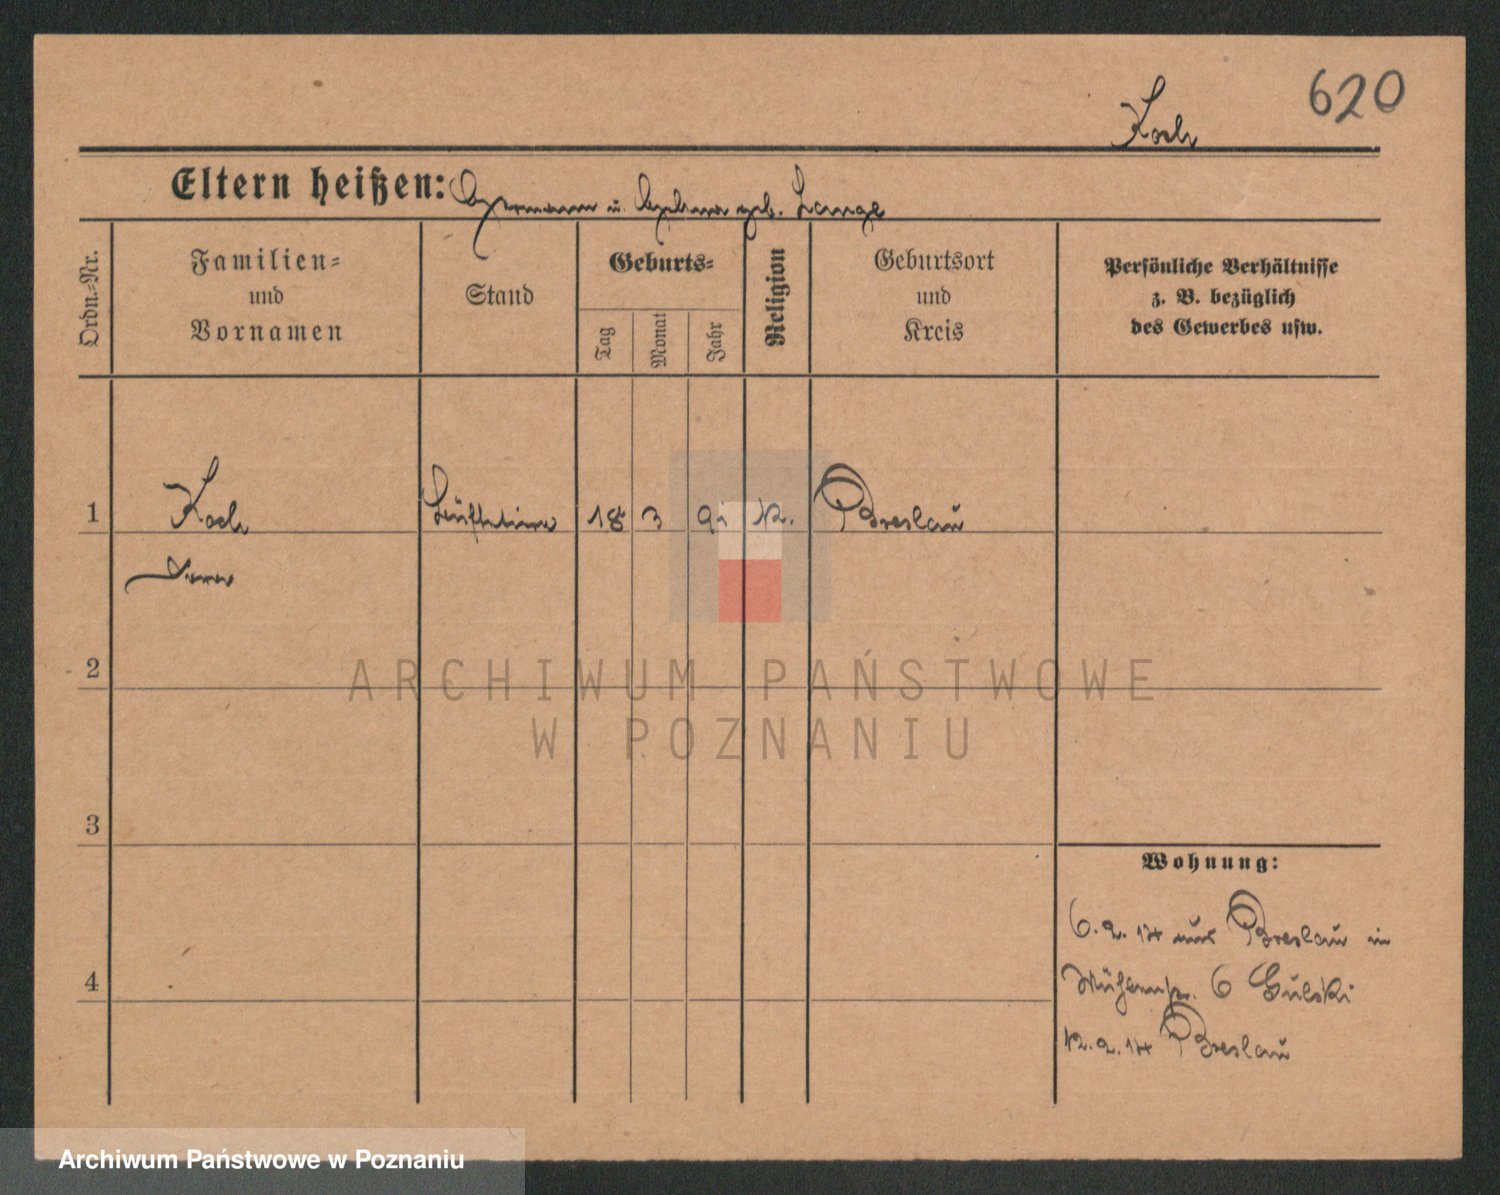 620
Koch
Eltern heißen: Hermann u. geb. Lange
Ordn.-Nr.
Familien-
und
Vornamen
Stand
Geburts-
Tag
Monat
Jahr
Religion
Geburtsort
und
Kreis
Persönliche Verhältnisse
z. B. bezüglich
des Gewerbes usw.
1 Koch 18 3 91 K. Breslau
2
ARCHIWUM PAŃSTWOWE
W POZNANIU
3
Wohnung:
6.2.14 aus Breslau in
4
Mühlenstr. 6 Gulski
12.2.14 Breslau
Archiwum Państwowe w Poznaniu